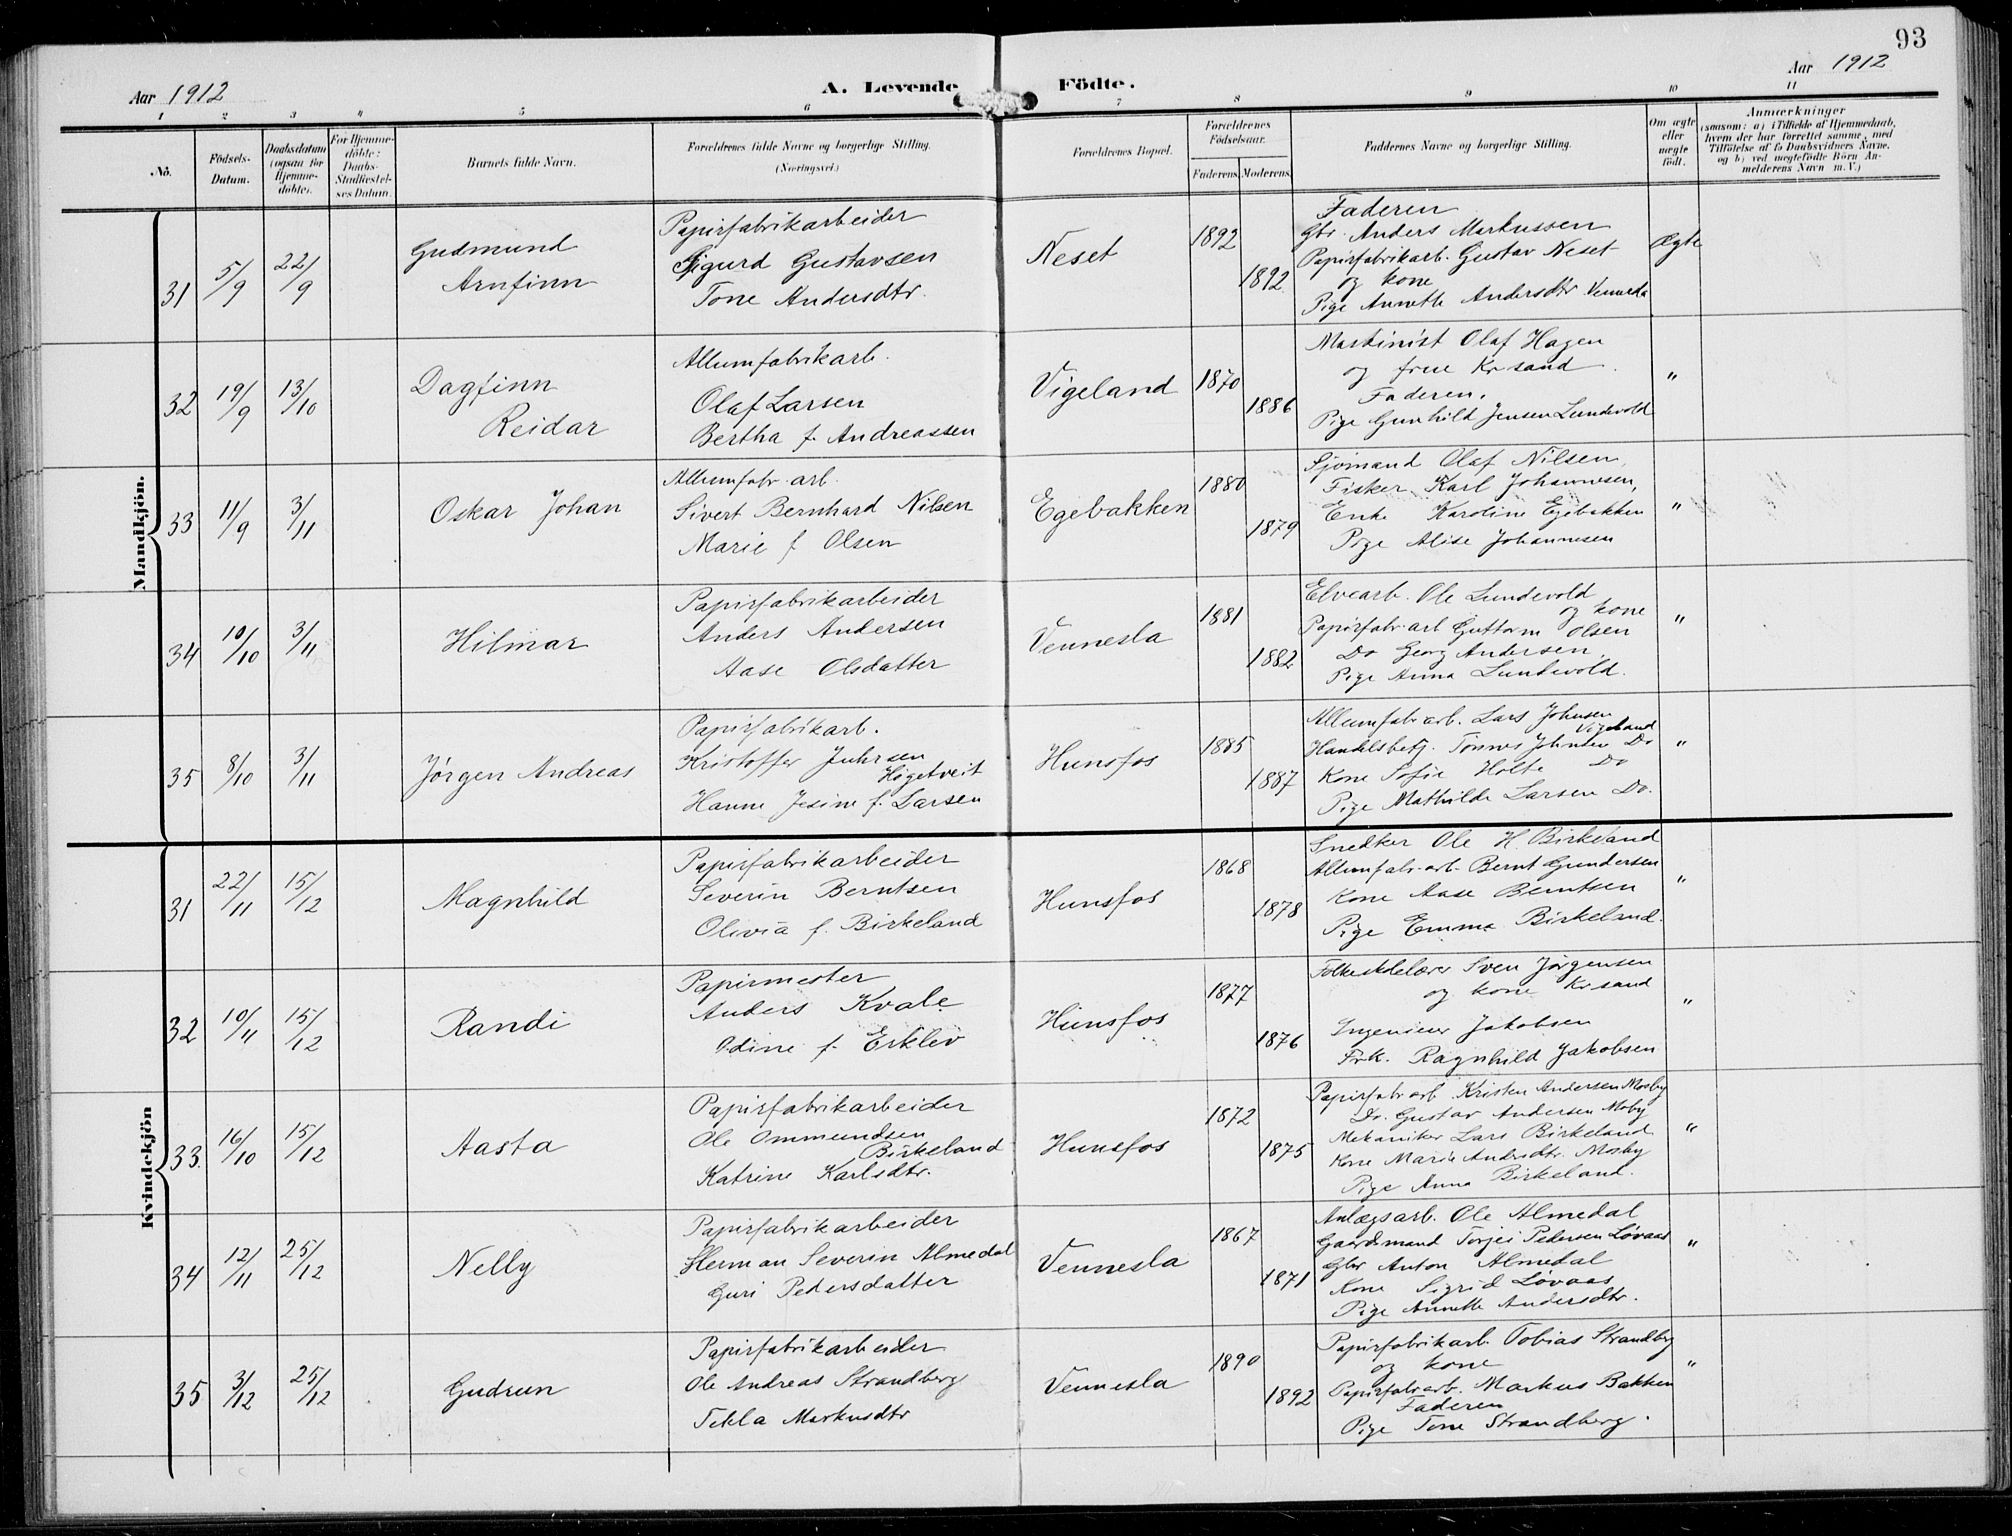 93
Aar 1912
A. Levende Födte.
Aar 1912
1 2 3 4 5 6 7 8 9 10 11
No.
Födsels-
Datum.
Daabsdatum
(ogsaa for
Hjemme-
döbte).
For Hjemme-
döbte:
Daabs-
Stadfæstel-
ses Datum.
Barnets fulde Navn.
Forældrenes fulde Navne og borgerlige Stilling.
(Næringsvei.)
Forældrenes Bopæl.
Forældrenes
Födselsaar.
Faderens. Moderens.
Faddernes Navne og borgerlige Stilling.
Om ægte
eller
uægte
födt.
Anmærkninger
(saasom: a) i Tilfælde af Hjemmedaab,
hvem der har forrettet samme, med
Tilföielse af to Daabsvidners Navne,
og b) ved uægtefödte Börn An-
melderens Navn m. V.)
Mandkjön.
31 5/9 22/9
Gudmund
Arnfinn
Papirfabrikarbeider
Sigurd Gustavsen
Tone Andersdtr.
Neset
1892
1892
Faderen
Gbr. Anders Markussen
Papirfabrikarb. Gustav Neset
og kone
Pige Annette Andersdtr Vennesla
Ægte
32 19/9 13/10
Dagfinn
Reidar
Allumfabrikarb.
Olaf Larsen
Bertha f. Andreassen
Vigeland
1870
1886
Maskinist Olaf Hagen
og frue Kr.sand.
Faderen.
Pige Gunhild Jensen Lundevold
"
33 11/9 3/11
Oskar Johan
Allumfabr. arb.
Sivert Bernhard Nilsen
Marie f. Olsen
Egebakken
1880
1879
Sjømand Olaf Nilsen,
Fisker Karl Johannesen,
Enke Karoline Egebakken
Pige Alise Johannesen
"
34 10/10 3/11
Hilmar
Papirfabrikarbeider
Anders Andersen
Aase Olsdatter
Vennesla
1881
1882
Elvearb. Ole Lundevold
og kone
Papirfabr. arb Guttorm Olsen
Do Georg Andersen,
Pige Anna Lundevold.
"
35 8/10 3/11
Jørgen Andreas
Papirfabrikarb.
Kristoffer Juhrsen
Høgetveit
Hanne Jesine f. Larsen
Hunsfos
1885
1887
Allumfabr. arb. Lars Johnsen
Vigeland
Handelsbetj. Tønnes Johnsen Do
Kone Sofie Holte Do
Pige Mathilde Larsen Do.
"
Kvindekjön
31 22/11 15/12
Magnhild
Papirfabrikarbeider
Severin Berntsen
Olivia f. Birkeland
Hunsfos
1868
1878
Snedker Ole H. Birkeland
Allumfabr. arb. Bernt Gundersen
Kone Aase Berntsen
Pige Emma Birkeland.
"
32 10/11 15/12
Randi
Papirmester
Anders Kvale
Odine f. Erklev
Hunsfos
1877
1876
Folkeskolelærer Sven Jørgensen
og kone Kr.sand
Ingeniør Jakobsen
Frk. Ragnhild Jakobsen
"
33. 16/10 15/12
Aasta
Papirfabrikarbeider
Ole Ommundsen
Birkeland
Katrine Karlsdtr.
Hunsfos
1872
1875
Papirfabr arb Kristen Andersen Mosby
Do. Gustav Andersen Moby
Mekaniker Lars Birkeland
Kone Marie Andersdtr. Mosby
Pige Anna Birkeland.
"
34 12/11 25/12
Nelly
Papirfabrikarbeider
Herman Severin Almedal
Guri Pedersdatter
Vennesla
1867
1871
Anlægsarb. Ole Almedal
Gaardmand Torjei Pedersen Løvaas
Gbr Anton Almedal
Kone Sigrid Løvaas
Pige Annette Andersdtr.
"
35 3/12 25/12
Gudrun
Papirfabrikarbeider
Ole Andreas Strandberg
Tekla Markusdtr
Vennesla
1890
1892
Papirfabrikarb. Tobias Strandberg
og kone
Papirfabr arb. Markus Bakken
Faderen
Pige Tone Strandberg.
"